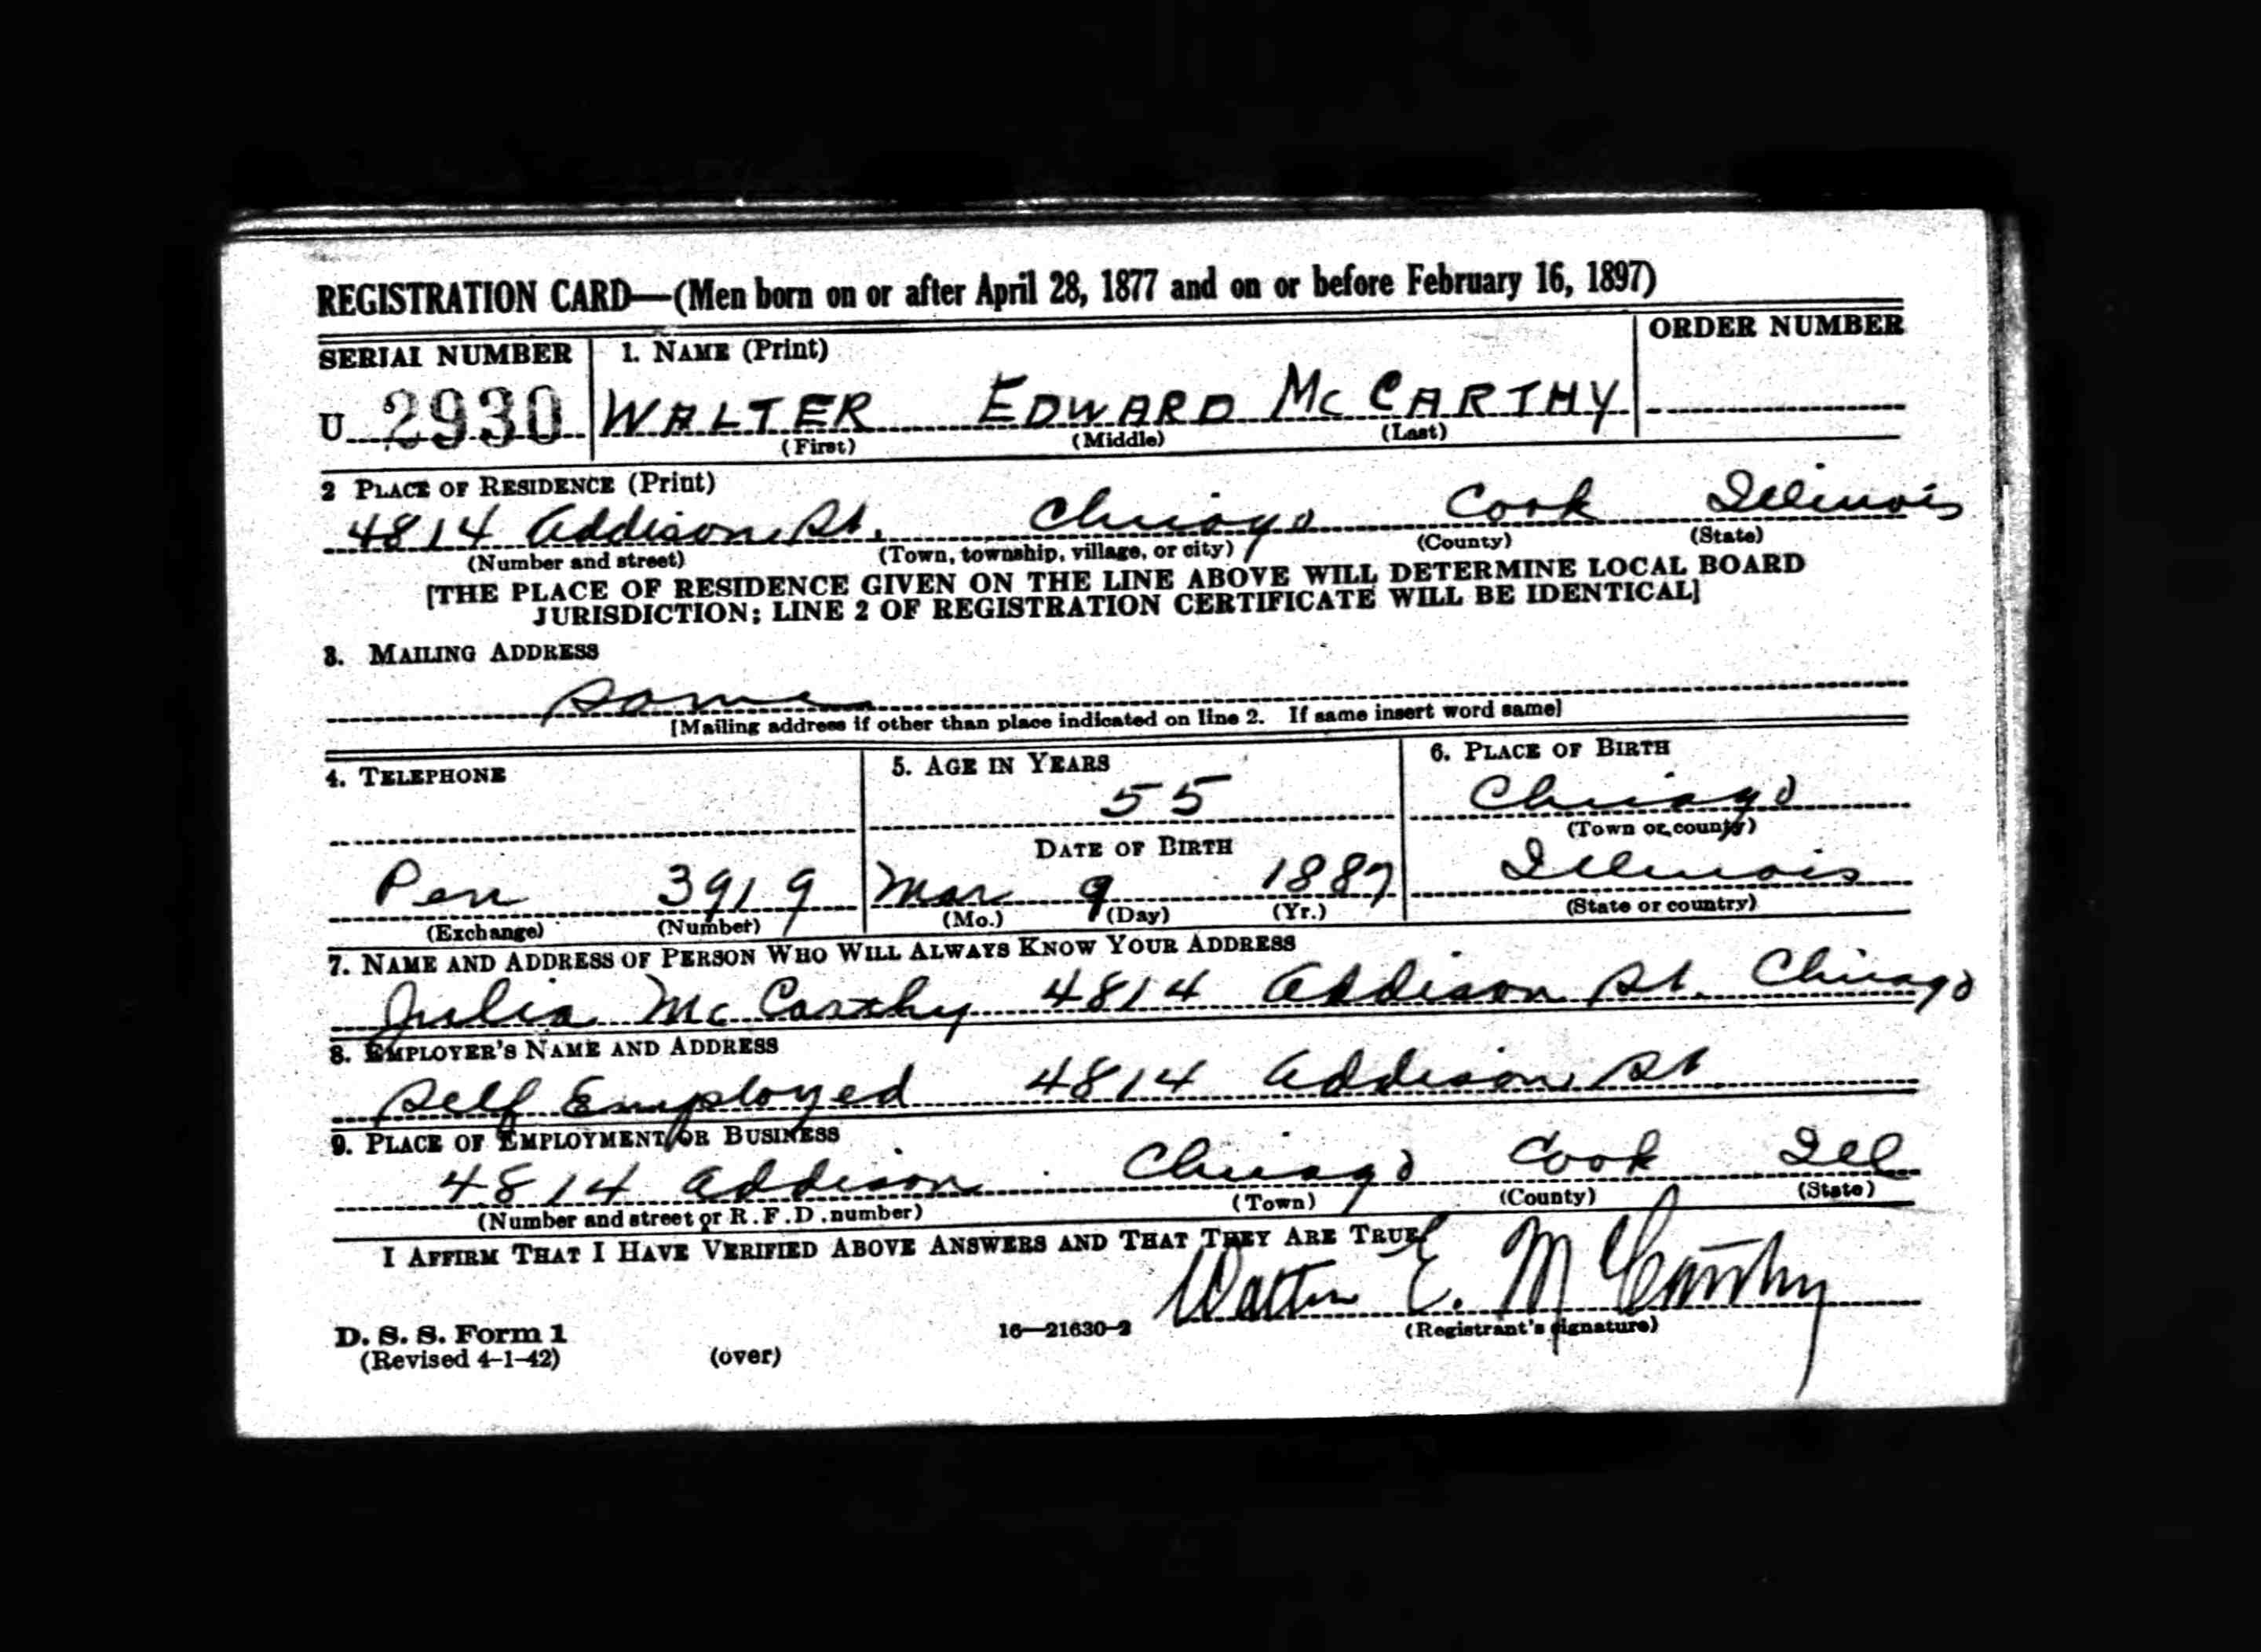 REGISTRATION CARD—(Men born on or after April 28, 1877 and on or before February 16, 1897)
SERIAL NUMBER 1. NAME (Print) ORDER NUMBER
U 2930 WALTER EDWARD McCARTHY
(First) (Middle) (Last)
2 PLACE OF RESIDENCE (Print)
4814 Addison St. Chicago Cook Illinois
(Number and street) (Town, township, village, or city) (County) (State)
[THE PLACE OF RESIDENCE GIVEN ON THE LINE ABOVE WILL DETERMINE LOCAL BOARD
JURISDICTION; LINE 2 OF REGISTRATION CERTIFICATE WILL BE IDENTICAL]
3. MAILING ADDRESS
Same
[Mailing address if other than place indicated on line 2. If same insert word same]
4. TELEPHONE 5. AGE IN YEARS 6. PLACE OF BIRTH
55 Chicago
DATE OF BIRTH (Town or county)
Pen 3919 Mar 9 1887 Illinois
(Exchange) (Number) (Mo.) (Day) (Yr.) (State or country)
7. NAME AND ADDRESS OF PERSON WHO WILL ALWAYS KNOW YOUR ADDRESS
Julia McCarthy 4814 Addison St. Chicago
8. EMPLOYER'S NAME AND ADDRESS
Self Employed 4814 Addison St
9. PLACE OF EMPLOYMENT OR BUSINESS
4814 Addison Chicago Cook Ill
(Number and street or R. F. D. number) (Town) (County) (State)
I AFFIRM THAT I HAVE VERIFIED ABOVE ANSWERS AND THAT THEY ARE TRUE
Walter E. McCarthy
D. S. S. Form 1 16—21630-2 (Registrant's signature)
(Revised 4-1-42) (over)